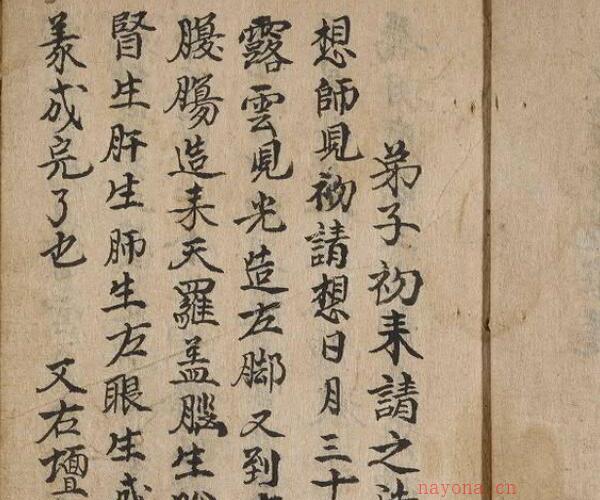 弟子初来請之
想師見初請想日月三十
露雲見光造左脚又到
腹腸造来天羅盖腦生
腎生肝生肺生左眼生成
義成完了也 又右壇
nayona.cn